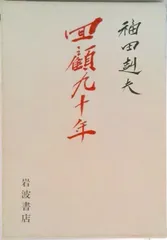 福田赳夫
回顧九十年
岩波書店